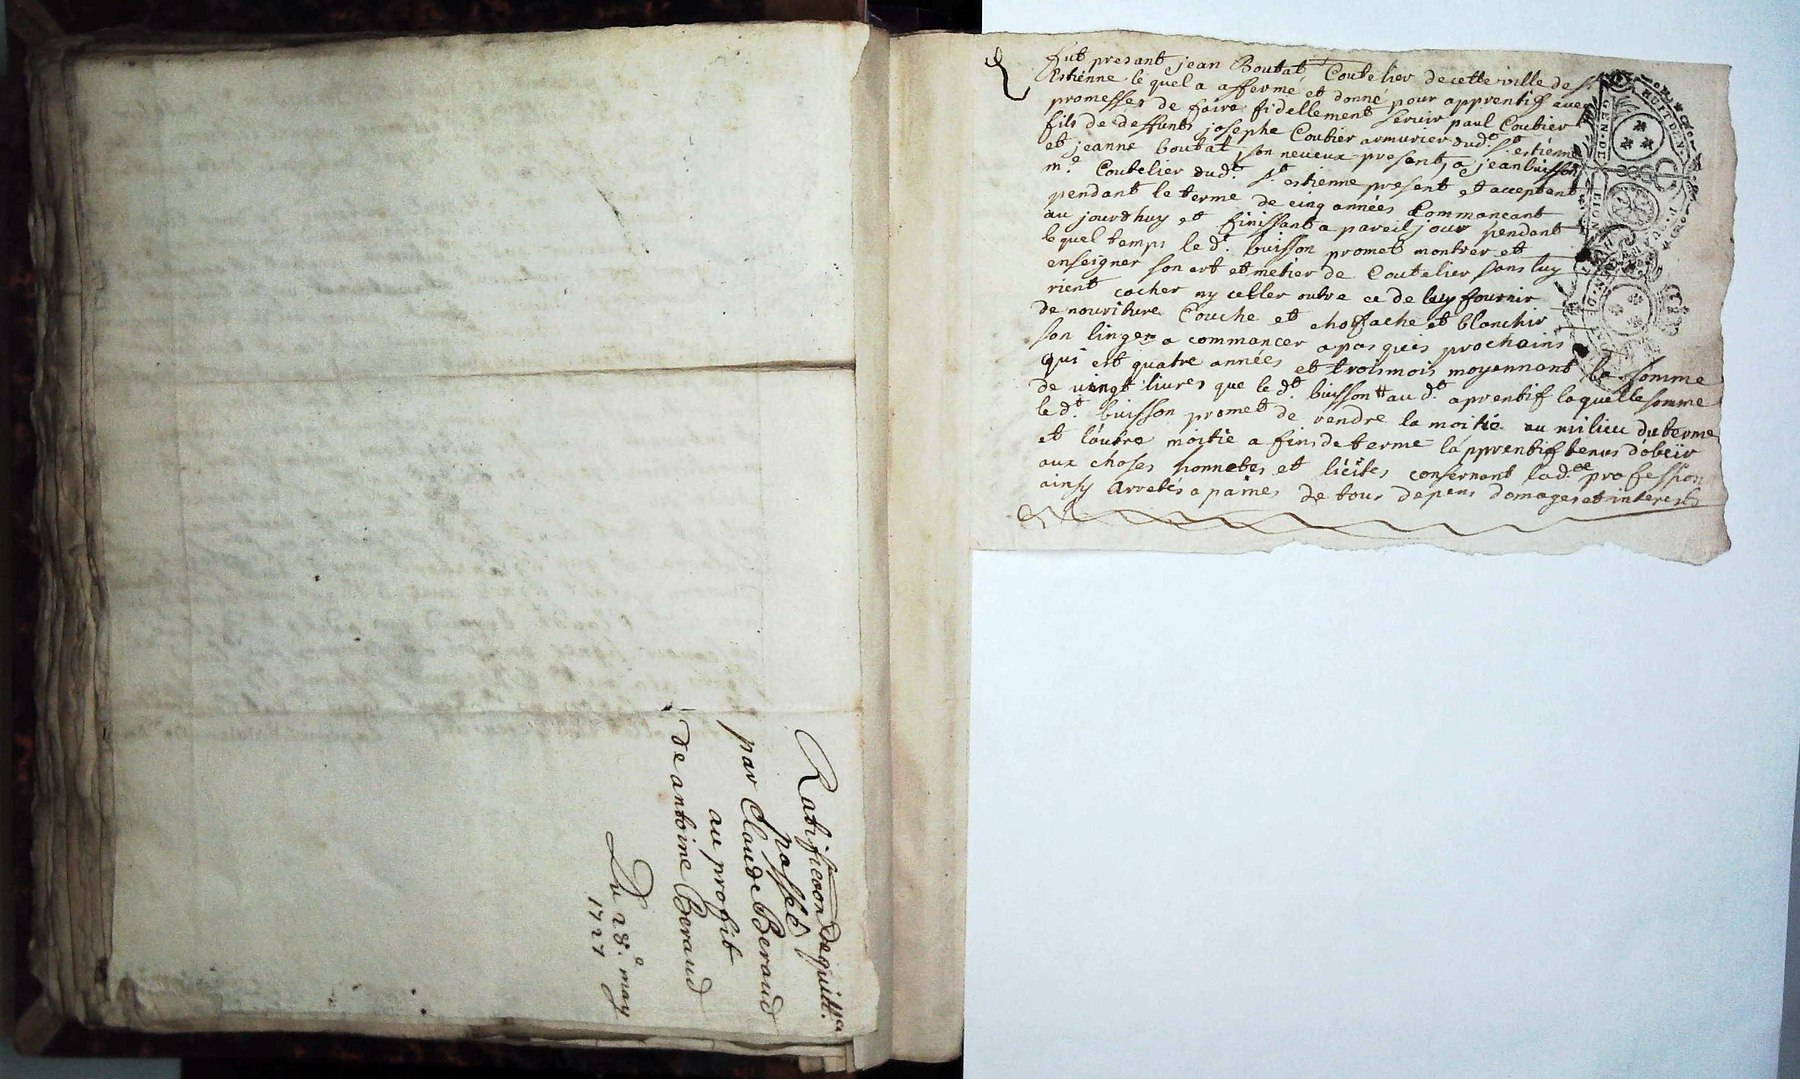 Ratificaoon Dequitt.ca
passée
par Claude Beraud
au profit
de antoine Beraud
Du 28.e may
1727
fut presant jean Boutat, Coutelier decette ville de St
Estienne le quel a afferme et donné pour apprentif avec
promesses de faire fidellement servir paul Coutier
fils de deffunts josephe Coutier armurier dud.t St estienne
et jeanne boutat son neveux present, a jean buisson
m.e Coutelier dud.t St estienne present et acceptant
pendant le terme de cinq années Commancant
au jourdhuy et finissant a pareil jour pendant
lequel temps le d.t buisson promet montrer et
enseigner son art et metier de Coutelier sans luy
rient cacher ny celler outre ce de luy fournir
de nouriture Couche et choffache et blanchir
son linger a commancer a pasques prochains
qui est quatre années et trois mois moyennant la somme
de vingt livres que le d.t buisson au d.t aprentif laquelle somme
le d.t buisson promet de rendre la moitié au milieu du terme
et l'autre moitie a fin de terme l'apprentif tenus d'obeir
aux choses honnetes et licites consernant lad.e profession
ainsy arretés a paines de tous depens domages et interests
HUIT DEN.
GEN. DE